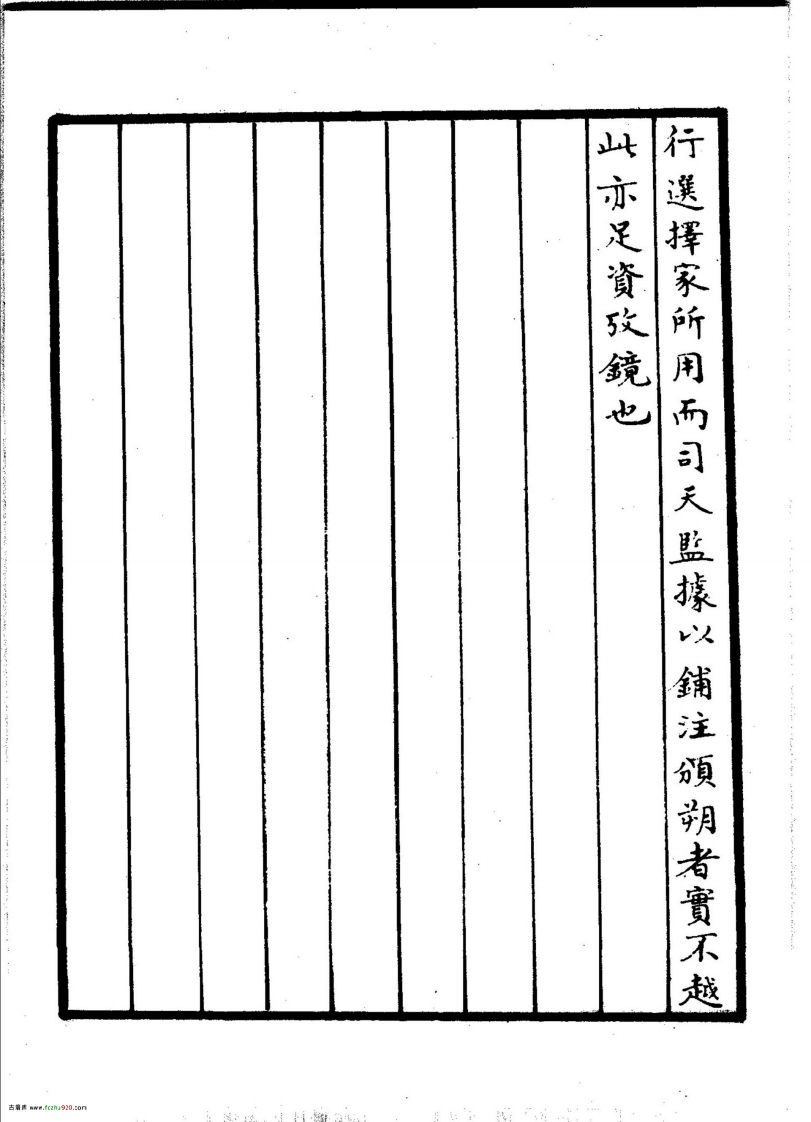 行選擇家所用而司天監據以鋪注頒朔者實不越
此亦足資攷鏡也
古籍库 www.fczhu920.com